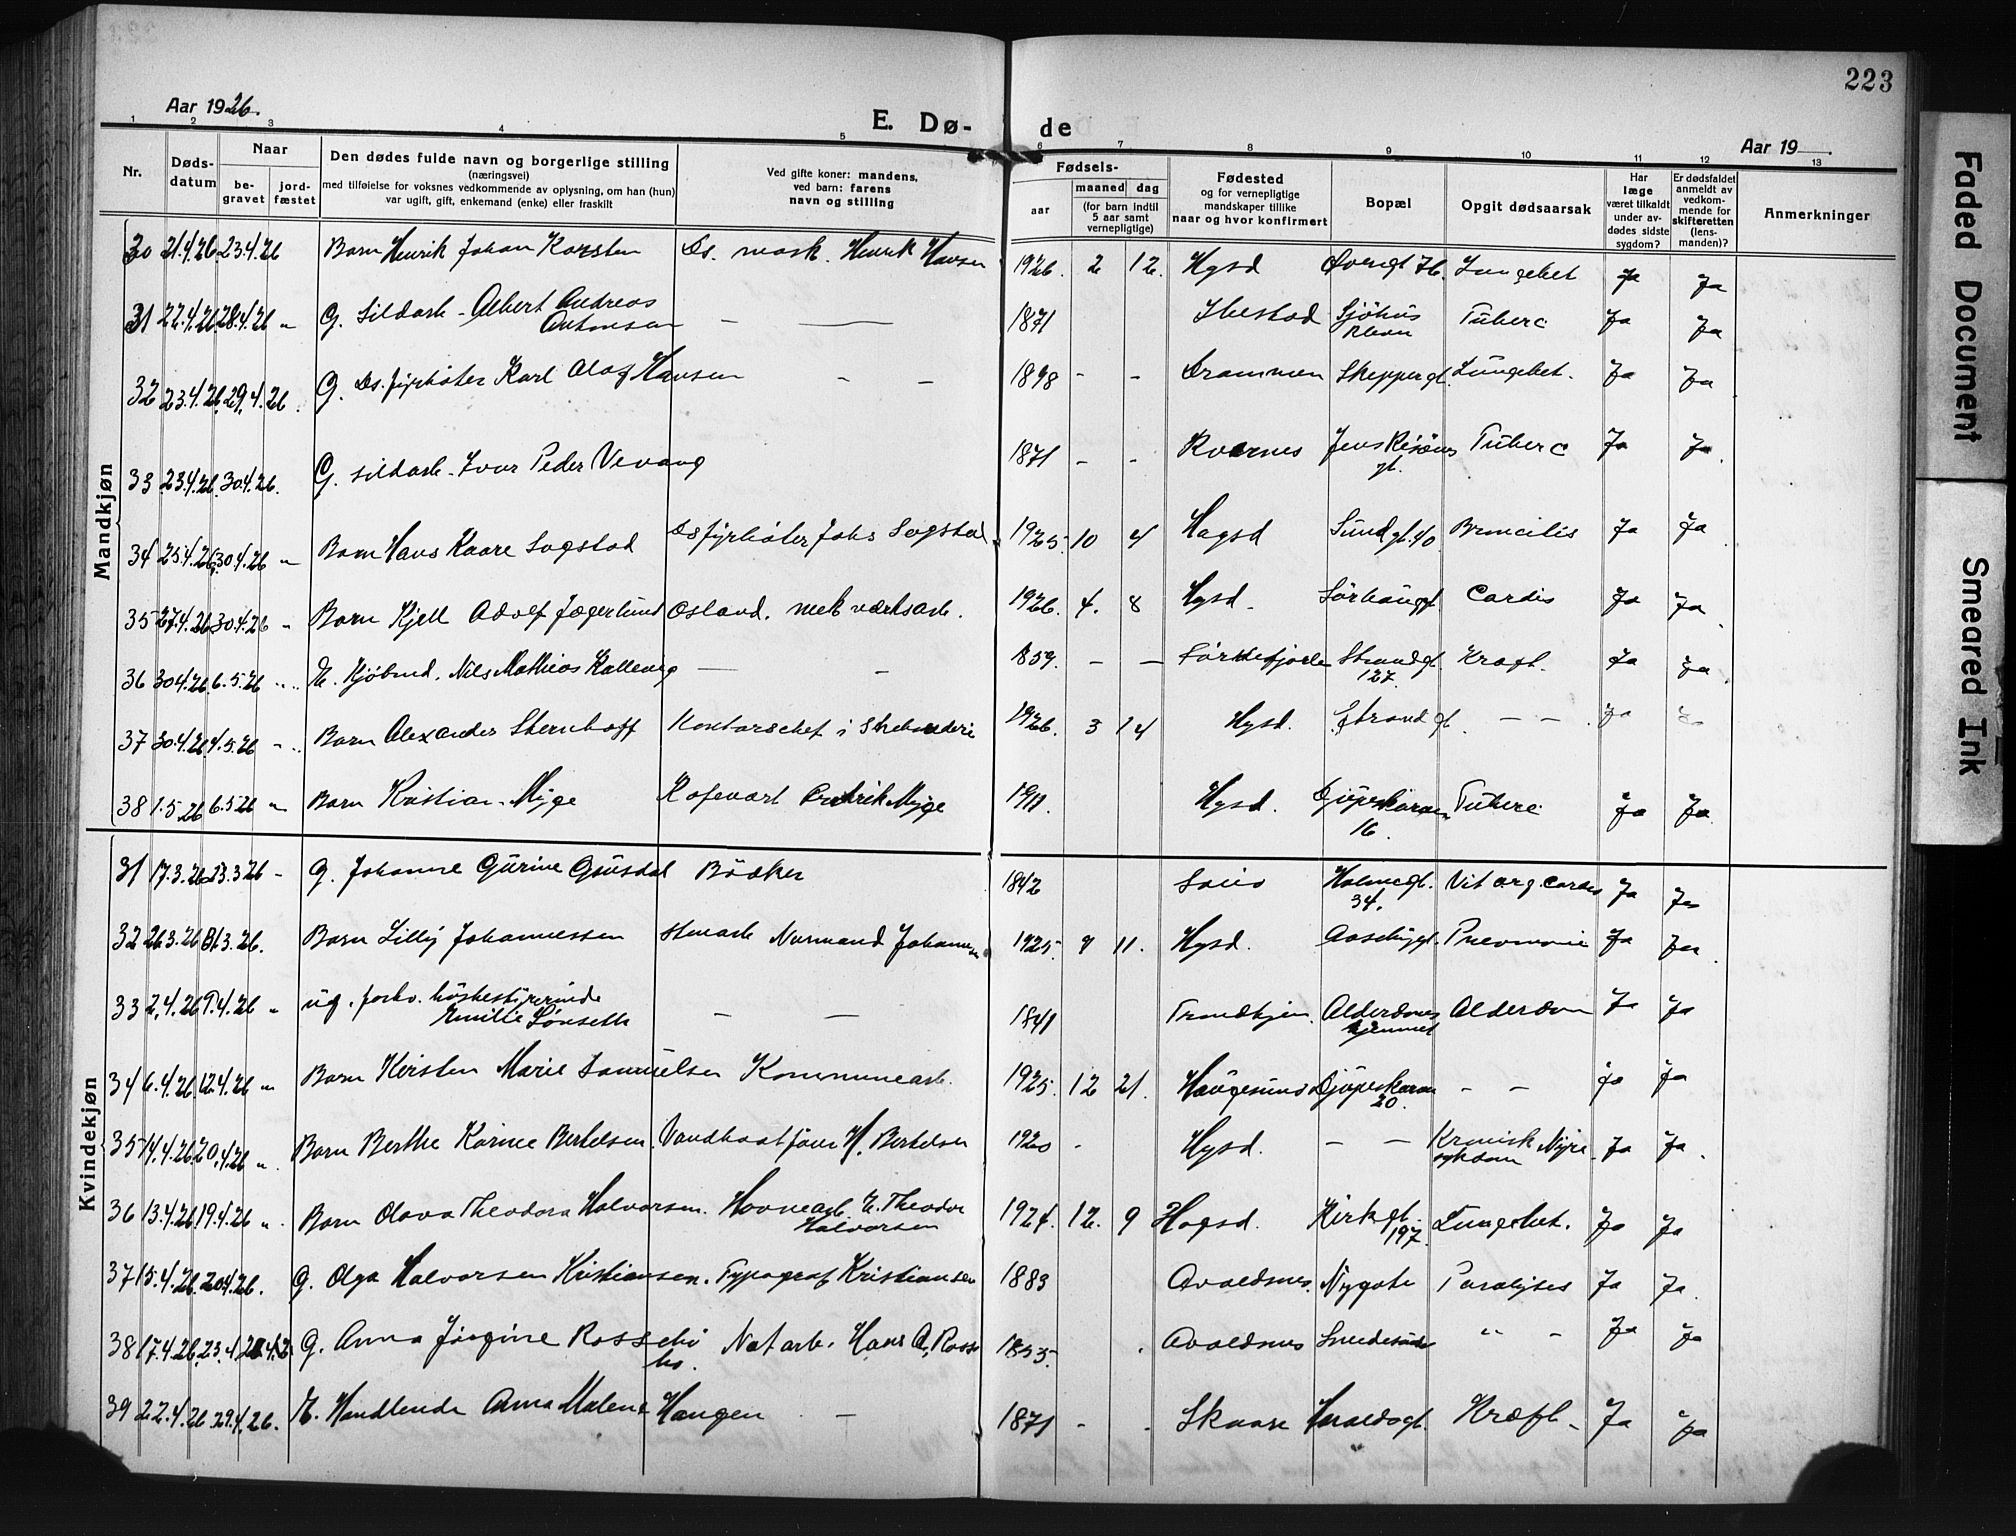 223
Aar 1926.
E. Dø- de
Aar 19
1 2 3 4 5 6 7 8 9 10 11 12 13
Nr.
Døds-
datum
Naar
be-
gravet
jord-
fæstet
Den dødes fulde navn og borgerlige stilling
(næringsvei)
med tilføielse for voksnes vedkommende av oplysning, om han (hun)
var ugift, gift, enkemand (enke) eller fraskilt
Ved gifte koner: mandens,
ved barn: farens
navn og stilling
Fødsels-
aar
maaned
dag
(for barn indtil
5 aar samt
vernepligtige)
Fødested
og for vernepligtige
mandskaper tillike
naar og hvor konfirmert
Bopæl
Opgit dødsaarsak
Har
læge
været tilkaldt
under av-
dødes sidste
sygdom?
Er dødsfaldet
anmeldt av
vedkom-
mende for
skifteretten
(lens-
manden)?
Anmerkninger
Mandkjøn
30 21.4.26. 23.4.26 Barn Henrik Johan Karsten Ds. mask. Henrik Hansen 1926. 2 12. Hgsd Øvregt Lungebet Ja Ja
31 22.4.26 28.4.26 " G. Sildarb. Albert Andreas
Antonsen — — 1871 Ibestad Sjöhus Tuberc Ja Ja
32 23.4.26. 29.4.26. G. Ds. fyrböter Karl Olaf Hansen - - 1898 - - Drammen Skeppergt. Lungebet. Ja Ja
33 23.4.26. 30.4.26. G. sildarb. Ivar Peder Vevang 1871 - - Kvernes Jens Risöens
gt. Tuberc Ja Ja.
34 25.4.26. 30.4.26 " Barn Hans Kaare Sogstad Ds fyrböter Johs Sogstad 1925. 10 4 Hagsd Sundgt. 40 Broncitis Ja Ja
35 27.4.26 30.4.26 " Barn Kjell Adolf Jægerlund Osland. mek værksarb. 1926. 4. 8 Hgsd. Sörhauggt Cardis Ja Ja
36 30.4.26. 6.5.26 " E. Kjöbmd. Nils Mathias Kallevig — - 1859. - - Strandgt
127. Kræft. Ja Ja
37 30.4.26. 4.5.26 " Barn Alexander Sternhoff Kontorschef i 1926. 3 14 Hgsd. Strandgt — — Ja Ja
38 1.5.26 6.5.26 " Barn Kristian Myge Kafevært Fredrik Myge 1911. Hgsd. Djupeskaren
16. Tuberc Ja Ja
Kvindekjøn
31 17.3.26 23.3.26 - G. Johanne Gurine Grusdal Bödker 1842 Holmegt.
34. Vit org. cordis Ja Ja
32 26.3.26 31.3.26. Barn Lilly Johannessen stenarb Normand Johannessen 1925. 9 11. Hgsd. Aasebygt. Pneumonie Ja Ja
33 2.4.26 9.4.26 " ug. forhv. husbestyrerinde
Emilie Lönseth — — 1841 Trondhjem. Alderdoms
hjemmet Alderdom Ja Ja
34 6.4.26. 12.4.26 " Barn Kirsten Marie Samuelsen Kommunearb. 1925. 12 21. Haugesund Djupeskaren
20. — — Ja Ja
35 14.4.26. 20.4.26 " Barn Berthe Karine Bertelsen. Vandbaatförer H. Bertelsen 1920 - Hgsd. — — Kronisk Nyre
sykdom Ja Ja
36 13.4.26 19.4.26 " Barn Olava Theodora Halvorsen. Havnearb. E. Theodor
Halvorsen 1924. 12. 9 Hagsd. Kirkgt.
197. Lungebet. Ja Ja
37 15.4.26. 20.4.26. G. Olga Halvorsen Kristiansen. Typograf Kristiansen 1883 Avaldsnes. Nygate Paralyses Ja Ja
38 17.4.26. 23.4.26 G. Anna Jörgine Rossebö
bö. Not arb. Hans A. Rosse 1855. Avaldsnes Smedesunde " - Ja Ja
39 22.4.26 29.4.26. E. Handlende Anna Malene Haugen — 1871 - - Skaare Haraldsgt. Kræft - Ja Ja
Faded Document
Smeared Ink